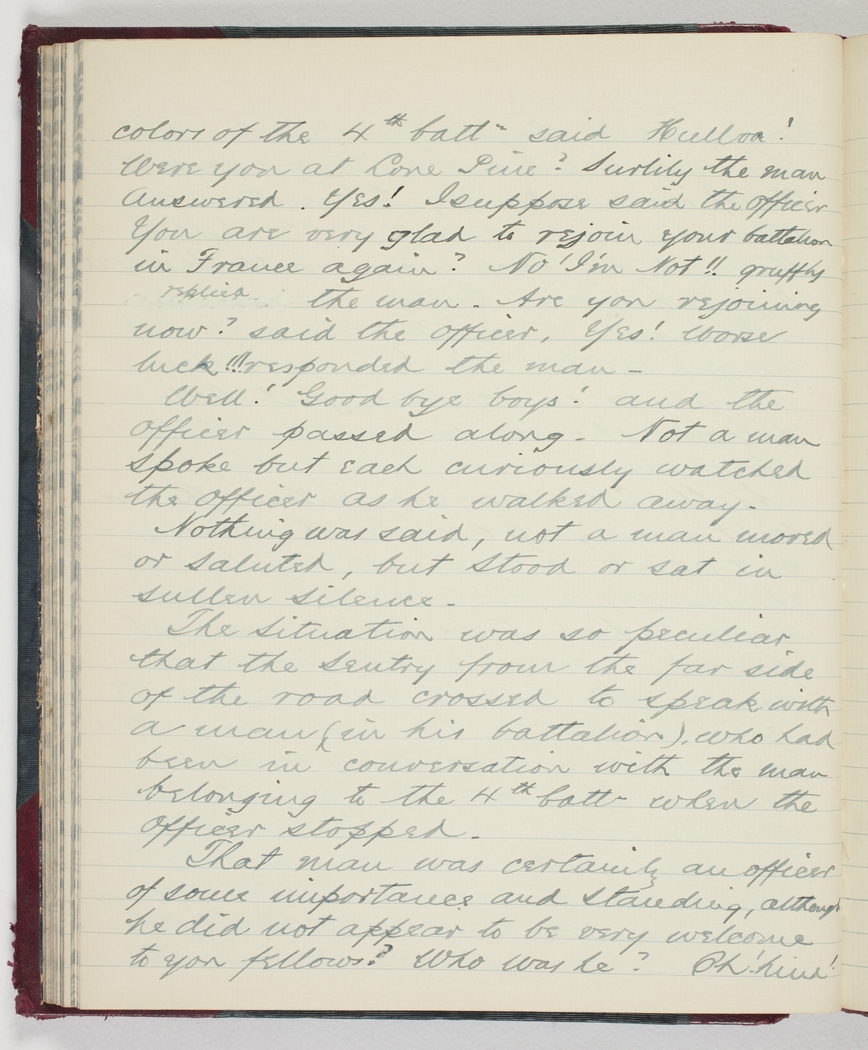 colors of the 4th battn said Hulloa!
Were you at Lone Pine? Surlily the man
answered. Yes! I suppose said the officer
You are very glad to rejoin your battalion
in France again? No! I'm Not!! gruffly
replied the man. Are you rejoining
now? said the officer, Yes! Worse
luck!!! responded the man -
Well! Good bye boys! and the
officer passed along. Not a man
spoke but each curiously watched
the officer as he walked away.
Nothing was said, not a man moved
or saluted, but stood or sat in
sullen silence.
The situation was so peculiar
that the sentry from the far side
of the road crossed to speak with
a man (in his battalion), who had
been in conversation with the man
belonging to the 4th batt when the
officer stopped.
That man was certainly an officer
of some importance and standing, although
he did not appear to be very welcome
to you fellows? Who was he? Oh! him!